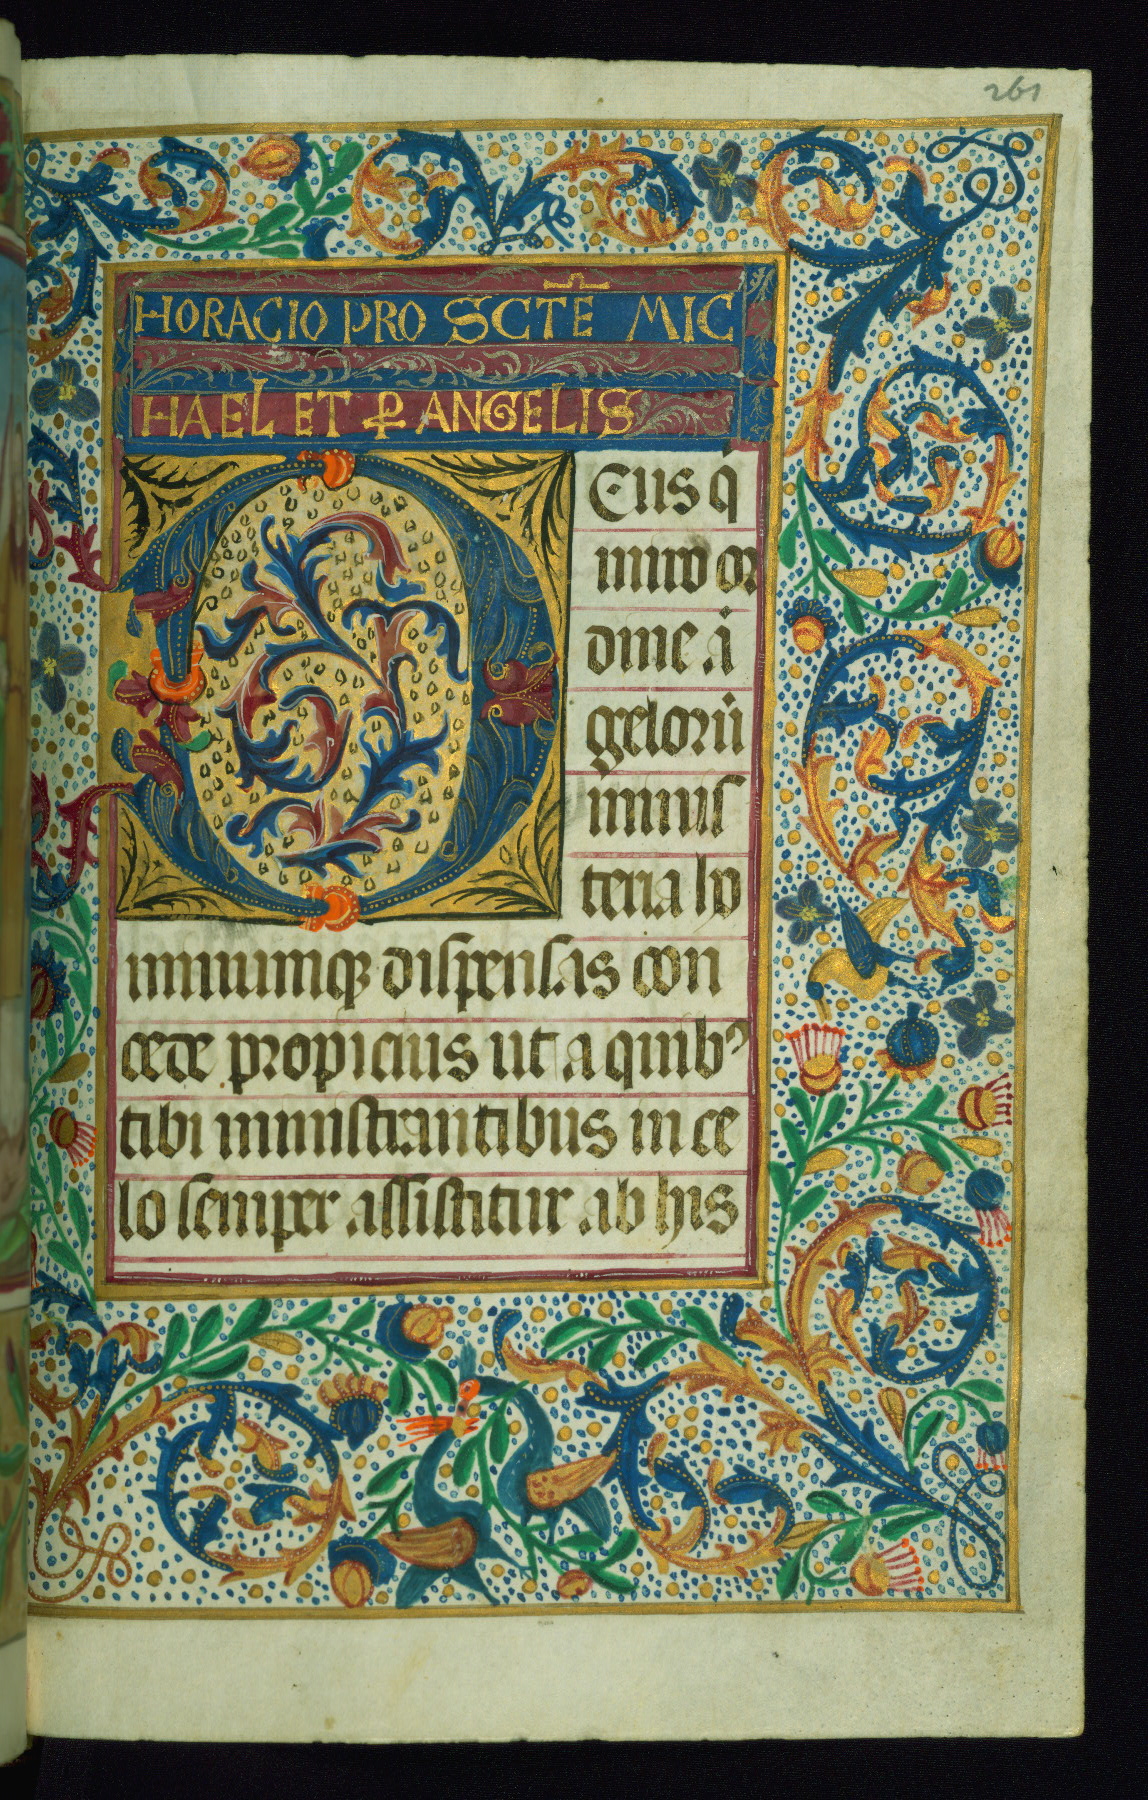 261
HORACIO PRO SCTE MIC
HAEL ET ꝑ ANGELIS
Deus q̇
miro or
dine ȧ
gelorū
minis
teria ho
minumqꝫ dispensas con
cede propicius ut a quibꝰ
tibi ministrantibus in ce
lo semper assistitur ab his